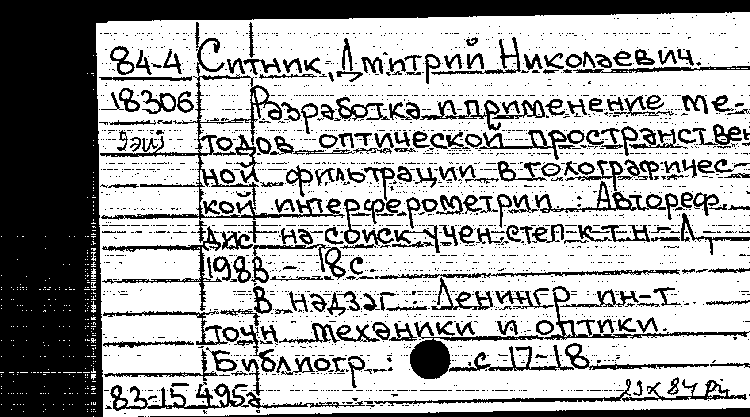 84-4 Ситник, Дмитрий Николаевич.
18306 Разработка и применение ме-
2экз тодов оптической пространствен
ной фильтрации в голографичес-
кой интерферометрии : Автореф.
дис на соиск учен степ к т н - Л,
1983 - 18с.
В надзаг : Ленингр ин-т
точн механики и оптики.
Библиогр : с 17-18.
83-15495а